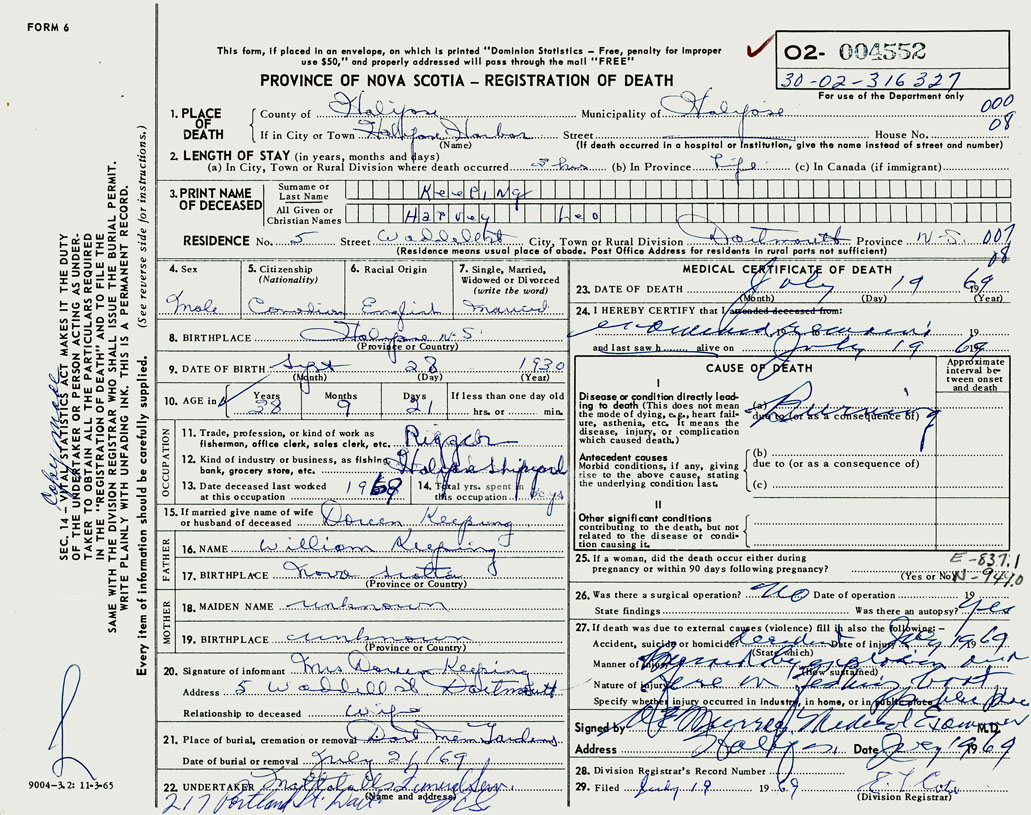 FORM 6
This form, if placed in an envelope, on which is printed "Dominion Statistics – Free, penalty for improper
use $50," and properly addressed will pass through the mail "FREE"
PROVINCE OF NOVA SCOTIA – REGISTRATION OF DEATH
O2- 004552
30-02-316327
For use of the Department only
000
08
1. PLACE OF DEATH
County of Halifax Municipality of Halifax
If in City or Town Halifax Harbor Street House No.
(Name) (If death occurred in a hospital or institution, give the name instead of street and number)
2. LENGTH OF STAY (in years, months and days)
(a) In City, Town or Rural Division where death occurred hrs (b) In Province Life (c) In Canada (if immigrant)
3. PRINT NAME OF DECEASED
Surname or Last Name Keeping
All Given or Christian Names Harvey Leo
RESIDENCE No. 5 Street Waddell St City, Town or Rural Division Dartmouth Province N.S. 007
08
(Residence means usual place of abode. Post Office Address for residents in rural parts not sufficient)
4. Sex
Male
5. Citizenship
(Nationality)
Canadian
6. Racial Origin
English
7. Single, Married,
Widowed or Divorced
(write the word)
Married
8. BIRTHPLACE Halifax N.S.
(Province or Country)
9. DATE OF BIRTH Sept 28 1930
(Month) (Day) (Year)
10. AGE in
Years Months Days If less than one day old
38 9 21 hrs. or min.
OCCUPATION
11. Trade, profession, or kind of work as
fisherman, office clerk, sales clerk, etc. Rigger
12. Kind of industry or business, as fishing,
bank, grocery store, etc. Halifax Shipyard
13. Date deceased last worked
at this occupation 1969
14. Total yrs. spent in
this occupation
15. If married give name of wife
or husband of deceased Doreen Keeping
FATHER
16. NAME William Keeping
17. BIRTHPLACE Nova Scotia
(Province or Country)
MOTHER
18. MAIDEN NAME unknown
19. BIRTHPLACE unknown
(Province or Country)
20. Signature of informant Mrs Doreen Keeping
Address 5 Waddell St Dartmouth
Relationship to deceased Wife
21. Place of burial, cremation or removal Dart Mem Gardens
Date of burial or removal July 21/69
22. UNDERTAKER Funeral Serv.
(Name and address)
217 Portland St. Dart N.S.
MEDICAL CERTIFICATE OF DEATH
23. DATE OF DEATH July 19 1969
(Month) (Day) (Year)
24. I HEREBY CERTIFY that I attended deceased from:
examined remains 19
and last saw h alive on July 19 1969
CAUSE OF DEATH
Approximate
interval be-
tween onset
and death
I
Disease or condition directly lead-
ing to death (This does not mean
the mode of dying, e.g., heart fail-
ure, asthenia, etc. It means the
disease, injury, or complication
which caused death.)
(a) Burning
due to (or as a consequence of)
Antecedent causes
Morbid conditions, if any, giving
rise to the above cause, stating
the underlying condition last.
(b)
due to (or as a consequence of)
(c)
II
Other significant conditions
contributing to the death, but not
related to the disease or condi-
tion causing it.
25. If a woman, did the death occur either during
pregnancy or within 90 days following pregnancy?
(Yes or No)
E-837.1
N-949.0
26. Was there a surgical operation? No Date of operation 19
State findings Was there an autopsy? Yes
27. If death was due to external causes (violence) fill in also the following: –
Accident, suicide or homicide? Accident Date of injury July 19 1969
(State which)
Manner of injury Burned by explosion and
(How sustained)
Nature of injury fire on fishing boat
Specify whether injury occurred in industry, in home, or in public place public place
Signed by Murray Medical Examiner M.D.
Address Halifax Date July 19 1969
28. Division Registrar's Record Number
29. Filed July 19 1969
(Division Registrar)
SEC. 14 – VITAL STATISTICS ACT MAKES IT THE DUTY
OF THE UNDERTAKER OR PERSON ACTING AS UNDER-
TAKER TO OBTAIN ALL THE PARTICULARS REQUIRED
IN THE "REGISTRATION OF DEATH" AND TO FILE THE
SAME WITH THE DIVISION REGISTRAR WHO SHALL ISSUE THE BURIAL PERMIT.
WRITE PLAINLY WITH UNFADING INK. THIS IS A PERMANENT RECORD.
Every item of information should be carefully supplied. (See reverse side for instructions.)
Copy made
9004-3.2: 11-3-65